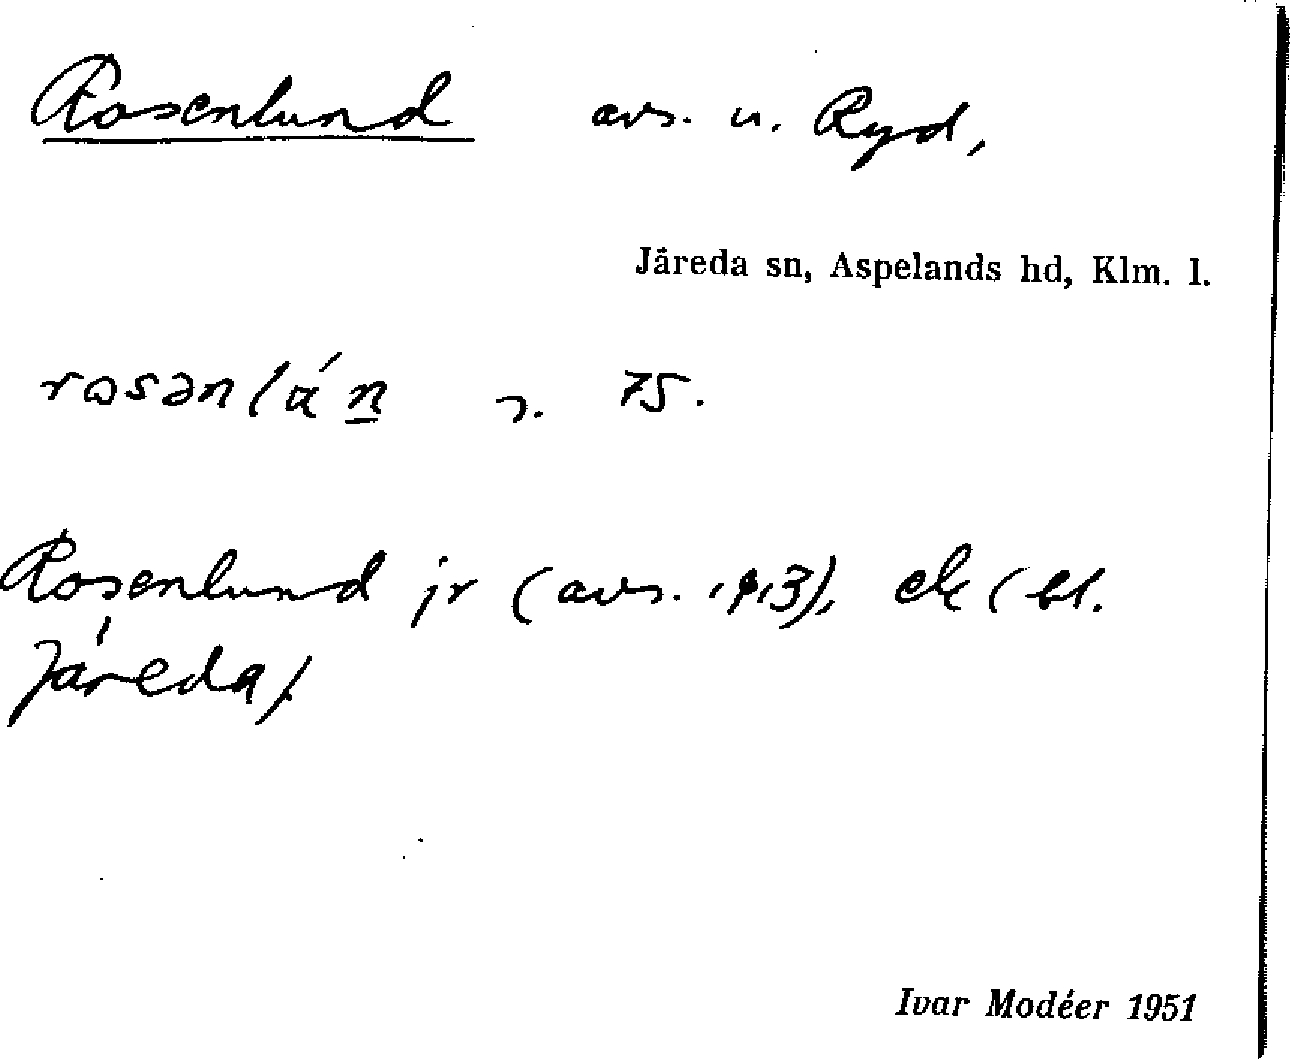 Rosenlund avs. u. Ryd,
Järeda sn, Aspelands hd, Klm. l.
75.
Rosenlund jr (avs. 1913), ek (bl.
Järeda).
Ivar Modéer 1951